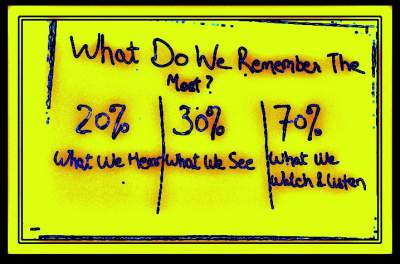 What Do We Remember The
Most?
20% 30% 70%
What We Hear What We See What We
Watch & Listen